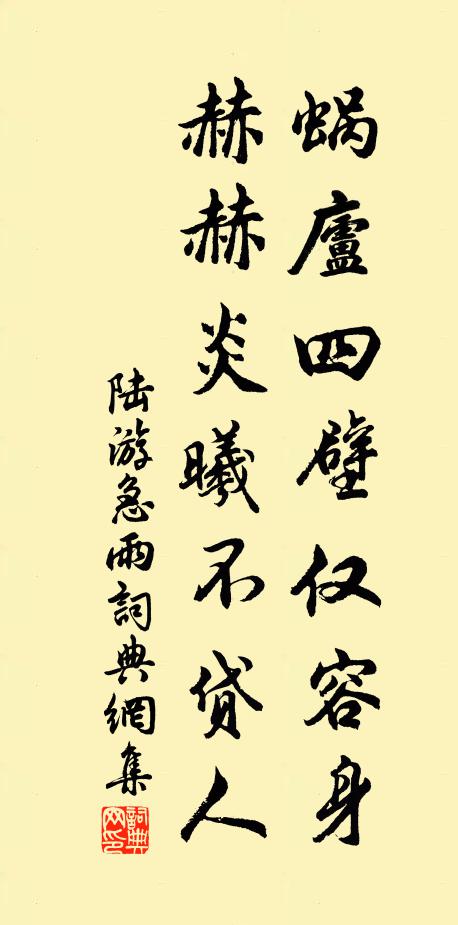 蝸廬四壁仅容身
赫赫炎曦不贷人
陆游急雨詞典網集
詞典网印